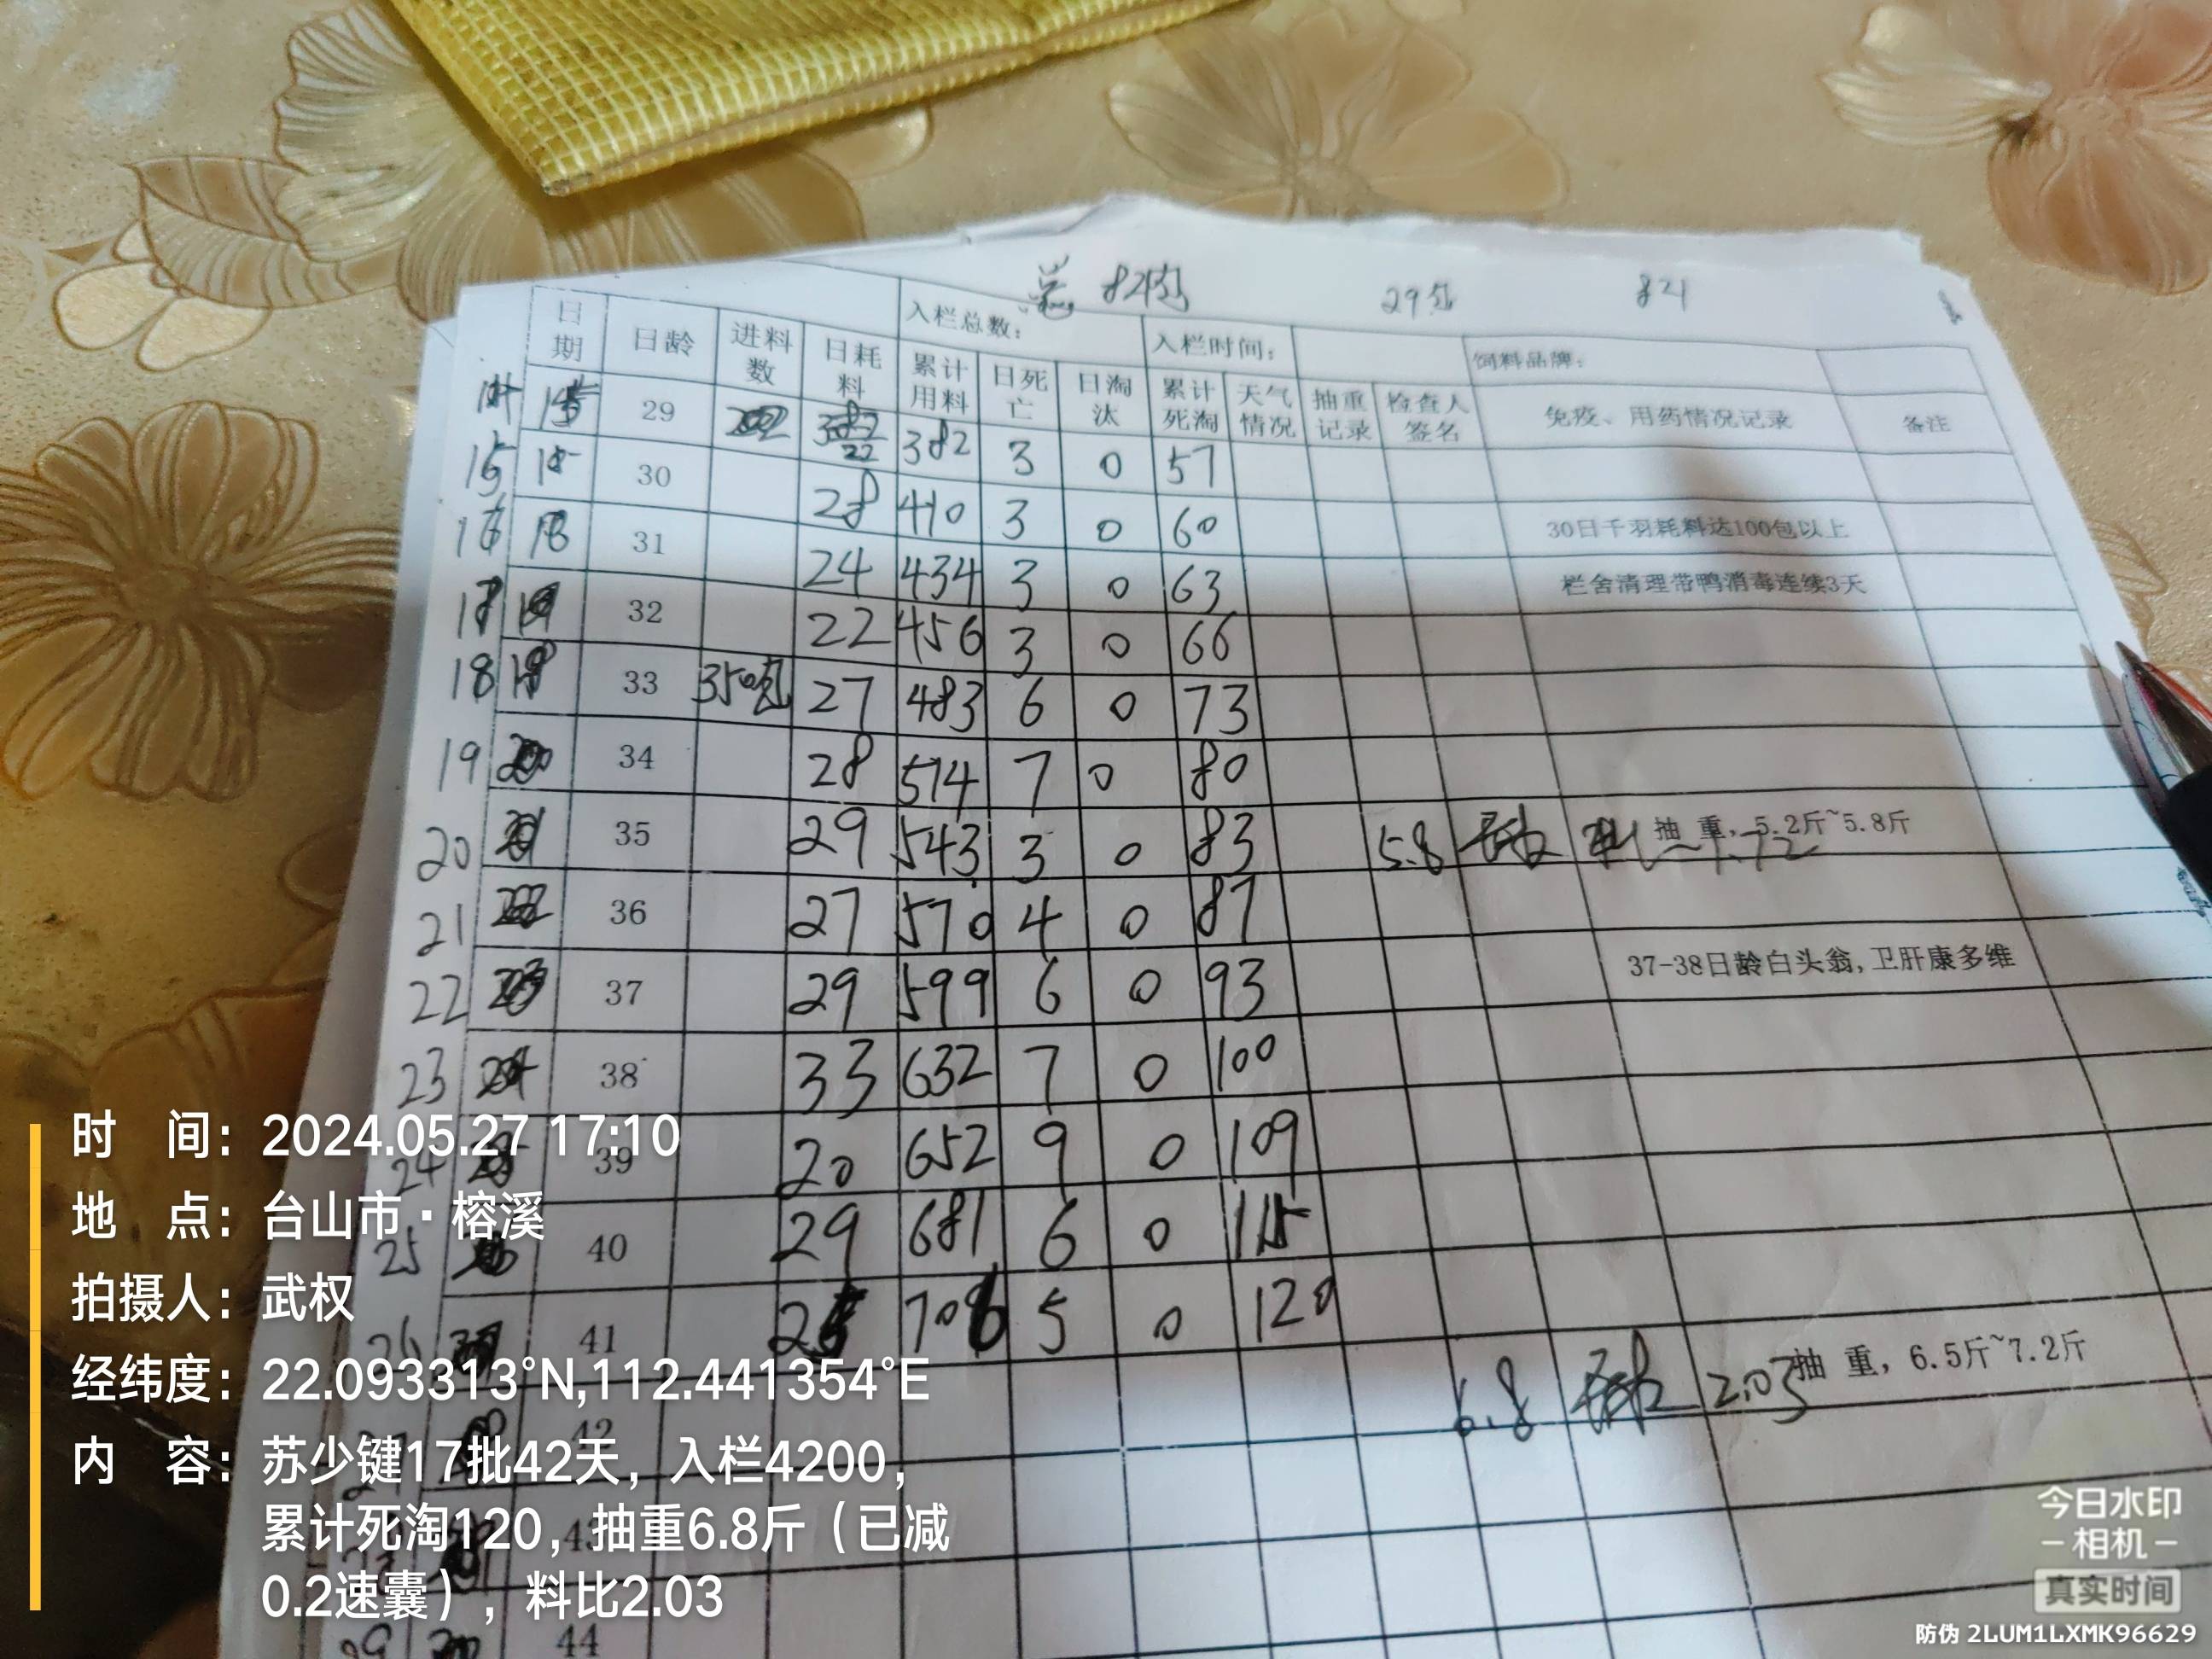 29包
821
入栏总数：
入栏时间：
饲料品牌：
日期 日龄 进料数 日耗料 累计用料 日死亡 日淘汰 累计死淘 天气情况 抽重记录 检查人签名 免疫、用药情况记录 备注
29 22 382 3 0 57
15 30 28 410 3 0 60 30日千羽耗料达100包以上
16 31 24 434 3 0 63 栏舍清理带鸭消毒连续3天
32 22 456 3 0 66
18 33 350包 27 483 6 0 73
19 34 28 514 7 0 80
20 35 29 543 3 0 83 5.8 抽 重，5.2斤~5.8斤
21 36 27 570 4 0 87
22 37 29 599 6 0 93 37-38日龄白头翁,卫肝康多维
23 38 33 632 7 0 100
24 39 20 652 9 0 109
25 40 29 681 6 0 115
26 41 25 706 5 0 120
42 6.8 2.03 抽 重，6.5斤~7.2斤
43
44
时 间：2024.05.27 17:10
地 点：台山市·榕溪
拍摄人：武权
经纬度：22.093313°N,112.441354°E
内 容：苏少键17批42天，入栏4200，
累计死淘120，抽重6.8斤（已减
0.2速囊），料比2.03
今日水印
相机
真实时间
防伪 2LUM1LXMK96629